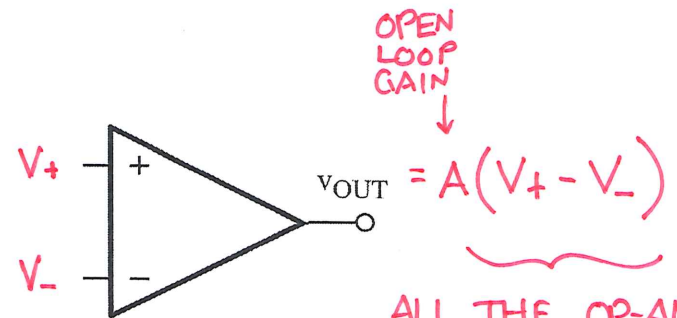 OPEN
LOOP
GAIN
V+ +
vOUT = A(V+ - V-)
V- −
ALL THE